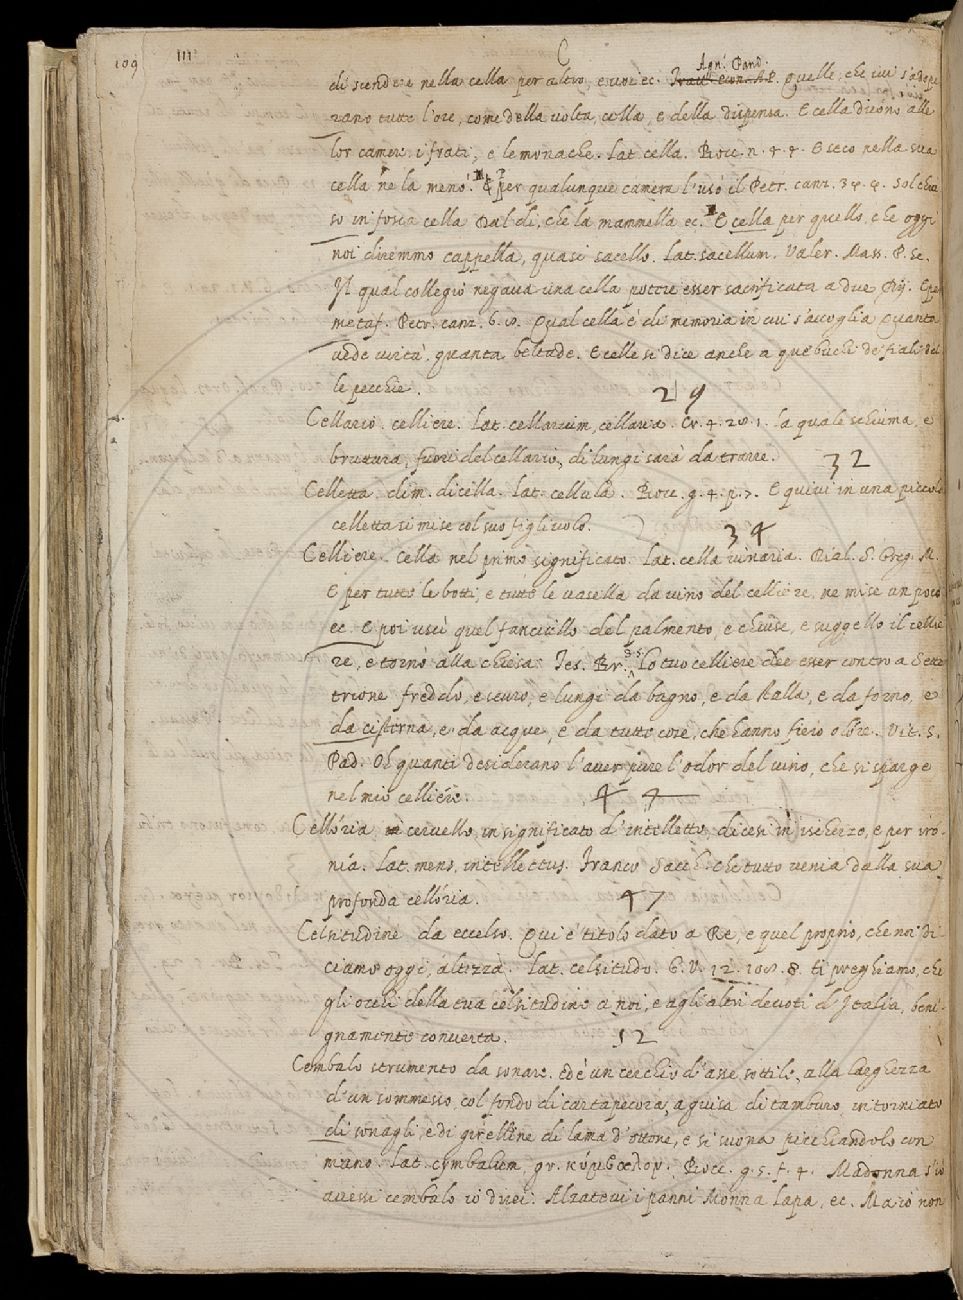 109 III C
Agn. Pand.
di scendere nella cella per altro, e voi ec. Quelle, che ivi s'adope
rano tutte l'ore, come della volta, cella, e della dispensa. E cella dicono alle
lor camere i frati, e le monache. Lat. cella. Bocc. n. 4. 4. E seco nella sua
cella ne la menò. E per qualunque camera l'usò il Petr. canz. 34. 4. Sol chiu
so in fosca cella Dal dì, che la mammella ec. E cella per quello, che oggi
noi diremmo cappella, quasi sacello. Lat. sacellum. Valer. Mass. P. Se.
Il qual collegio negava una cella potere esser sacrificata a due Dij. E per
metaf. Petr. canz. 6. 8. Qual cella è di memoria in cui s'accoglia Quanta
vede virtà, quanta beltade. E celle si dice anche a que' buchi de' fiali del
le pecchie.
29
Cellario. celliere. Lat. cellarium, cellaria. Cr. 4. 28. 1. la quale schiuma, e
bruttura, fuori del cellario, di lungi sarà da trarre.
32
Celletta. dim. di cella. Lat. cellula. Bocc. g. 4. p. 7. E quivi in una piccola
celletta si mise col suo figlivolo.
34
Celliere. cella nel primo significato. Lat. cella vinaria. Dial. S. Greg. M.
E per tutte le botti, e tutte le vasella da vino del celliere, ne mise un poco
ec. E poi uscì quel fanciullo del palmento, e chiuse, e suggello il cellie
re, e tornò alla chiesa. Tes. Br. 3. 5. Lo tuo celliere dee esser contro a Sette
trione freddo, e scuro, e lungi da bagno, e da stalla, e da forno, e
da cisterna, e da acque, e da tutte cose, che hanno fiero olore. Vit. S.
Pad. Oh quanti desiderano l'aver pure l'odor del vino, che si sparge
nel mio celliere.
44
Cellória cervello, in significato d'intelletto, dicesi in ischerzo, e per iro-
nia. Lat. mens, intellectus. Franco Sacch. che tutto venia dalla sua
profonda cellória.
47
Celsitudine da eccelso. Qui è titolo dato a Re, e quel proprio, che noi di
ciamo oggi, altezza. Lat. celsitudo. G. V. 12. 108. 8. ti preghiamo, che
gli occhi della tua celsitudine a noi, e agli altri devoti d'Italia, beni-
gnamente converta.
52
Cembalo strumento da sonare. Ed è un cerchio d'asse sottile, alla larghezza
d'un sommesso, col fondo di cartapecora, a guisa di tamburo, intorniato
di sonagli, e di girelline di lama d'ottone, e si suona picchiandolo con
mano. Lat. cymbalum, gr. κύμβαλον. Bocc. g. 5. f. 4. Madonna s'io
avessi cembalo io direi. Alzatevi i panni Monna Lapa, ec. Ma io non